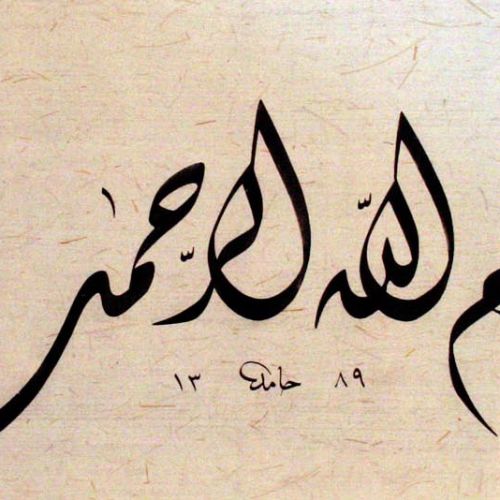 م الله الرحمن
٨٩ حامد ١٣